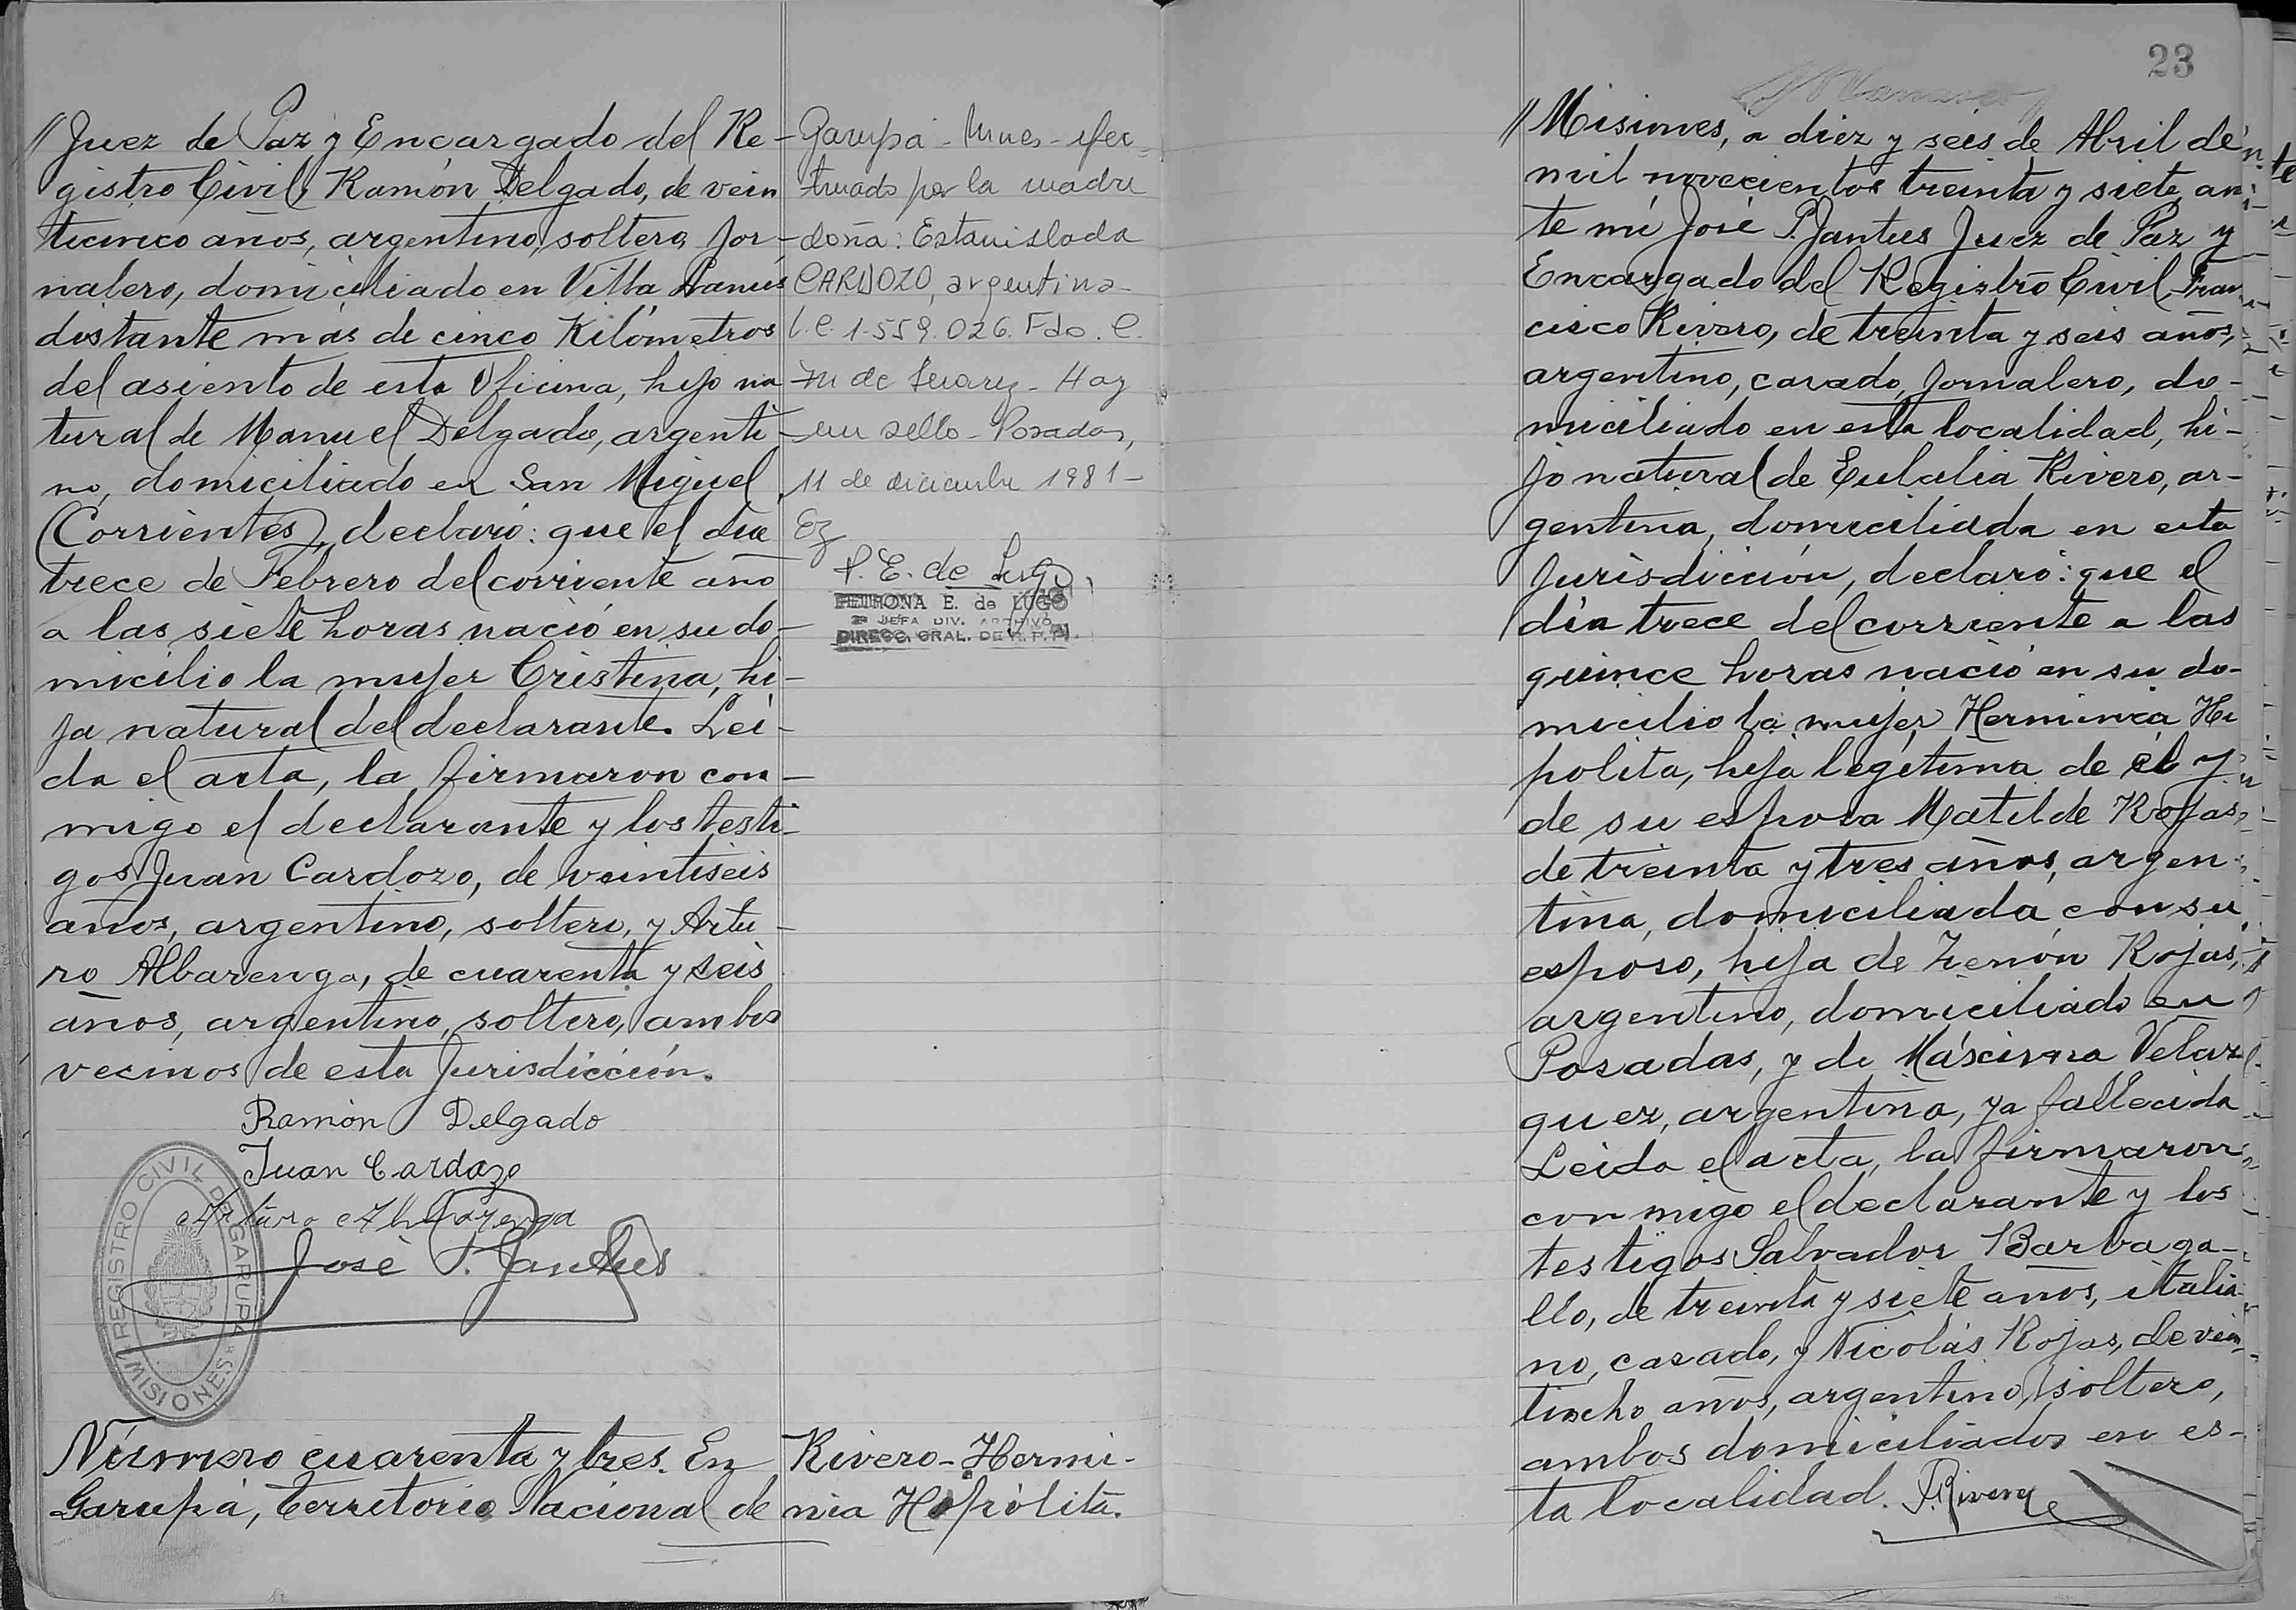 // Juez de Paz y Encargado del Re-
gistro Civil, Ramón Delgado, de vein
ticinco años, argentino, soltero, Jor-
nalero, domiciliado en Villa Lanús
distante más de cinco Kilómetros
del asiento de esta Oficina, hijo na
tural de Manuel Delgado, argenti-
no, domiciliado en San Miguel
(Corrientes), declaró: que el día
trece de Febrero del corriente año
a las siete horas nació en su do-
micilio la mujer Cristina, hi-
ja natural del declarante. Leí-
da el acta, la firmaron con-
migo el declarante y los testi-
gos Juan Cardozo, de veintiseis
años, argentino, soltero, y Artu-
ro Albarenga, de cuarenta y seis
años, argentino, soltero, ambos
vecinos de esta Jurisdicción.
Ramón Delgado
Juan Cardozo
Arturo Albarenga
José P. Jantus
REGISTRO CIVIL DE GARUPÁ
MISIONES
Número cuarenta y tres. En
Garupá, Territorio Nacional de
Garupá - Mnes - efec-
tuado por la madre
doña: Estanislada
CARDOZO, argentina
L.C. 1.559.026. Fdo. C.
M de Suarez - Hay
un sello - Posadas,
11 de diciembre 1981 -
Ez
P. E. de Lugo
PETRONA E. de LUGO
2ª JEFA DIV. ARCHIVO
DIRECC. GRAL. DE R. P. P.
Rivero - Hermi-
nia Hipólita.
23
// Misiones, a diez y seis de Abril de
mil novecientos treinta y siete, an
te mí José P. Jantus Juez de Paz y
Encargado del Registro Civil, Fran
cisco Rivero, de treinta y seis años,
argentino, casado, Jornalero, do-
miciliado en esta localidad, hi-
jo natural de Eulalia Rivero, ar-
gentina, domiciliada en esta
Jurisdicción, declaró: que el
día trece del corriente a las
quince horas nació en su do-
micilio la mujer Herminia Hi
polita, hija legítima de él y
de su esposa Matilde Rojas,
de treinta y tres años, argen-
tina, domiciliada con su
esposo, hija de Zenón Rojas,
argentino, domiciliado en
Posadas, y de Máscima Velaz
quez, argentina, ya fallecida
Leída el acta, la firmaron
conmigo el declarante y los
testigos Salvador Barbaga-
llo, de treinta y siete años, italia-
no, casado, y Nicolás Rojas, de vein
tiocho años, argentino, soltero,
ambos domiciliados en es-
ta localidad. F. Rivero